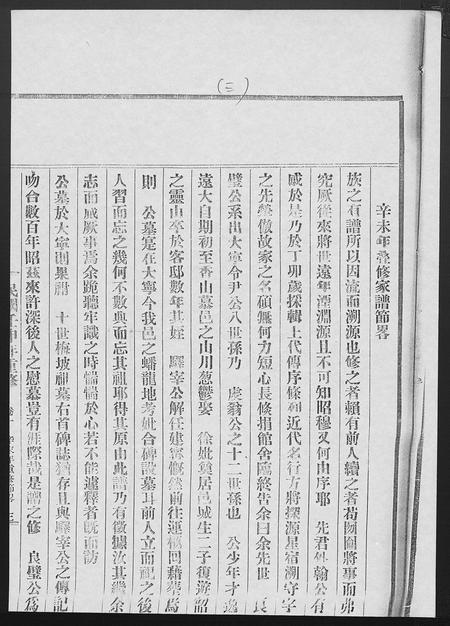 (三)
辛未年叠修家譜節畧
族之有譜所以因流而溯源也修之者賴有前人續之者苟因圖將事而弗
究厥從來將世遠年湮淵源且不可知昭穆又何由序耶 先君侶翰公有
感於是乃於丁卯歲採輯上代傳序條列近代名行方將探源星宿溯守字
之先榮傲故家之名碩無何力短心長條捐館舍臨終告余曰余先世 良
璧公系出大寧令尹公八世孫乃 虔翁公之十二世孫也 公少年才逸
遠大自期初至香山慕邑之山川葱鬱娶 徐妣奠居邑城生二子復游韶
之靈山卒於客邸數年其姪 驛宰公解任建寧慨然前往運柩回藉葬焉
則 公墓寔在大寧今我邑之蟠龍地考妣合碑設墓耳前人立而配之後
人習而忘之幾何不數典而忘其祖耶得其原由此譜乃有徵據汝其繼余
志而成厥事焉余跪聽牢識之時惴惴於心若不能遽釋者既而訪
公墓於大寧則與 十世梅坡祖墓右首碑誌猶存且與驛宰公之傳記
吻合數百年昭茲來許深後人之慰慕豈有涯際哉是譜之修 良璧公為
民國壬申年重修 卷一